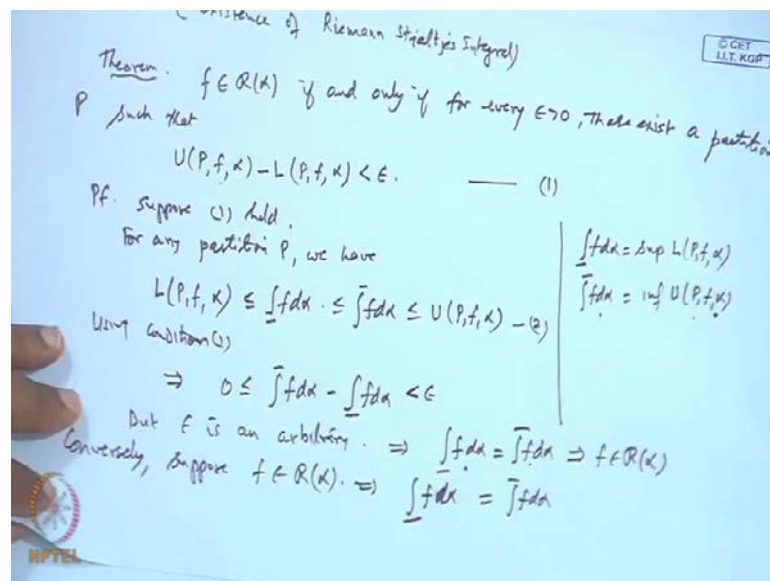 (Existence of Riemann Stieltjes Integral)
© CET
I.I.T. KGP
Theorem. f ∈ R(α) if and only if for every ϵ>0, There exist a partition
P such that
U(P,f,α) - L(P,f,α) < ϵ. —— (1)
Pf. Suppose (1) hold.
For any partition P, we have
L(P,f,α) ≤ \underline{∫}fdα ≤ \overline{∫}fdα ≤ U(P,f,α) -(2)
\underline{∫}fdα = sup L(P,f,α)
\overline{∫}fdα = inf U(P,f,α)
Using condition (1)
⇒ 0 ≤ \overline{∫}fdα - \underline{∫}fdα < ϵ
But ϵ is an arbitrary. ⇒ \underline{∫}fdα = \overline{∫}fdα ⇒ f∈R(α)
Conversely, Suppose f ∈ R(α). ⇒ \underline{∫}fdα = \overline{∫}fdα
NPTEL